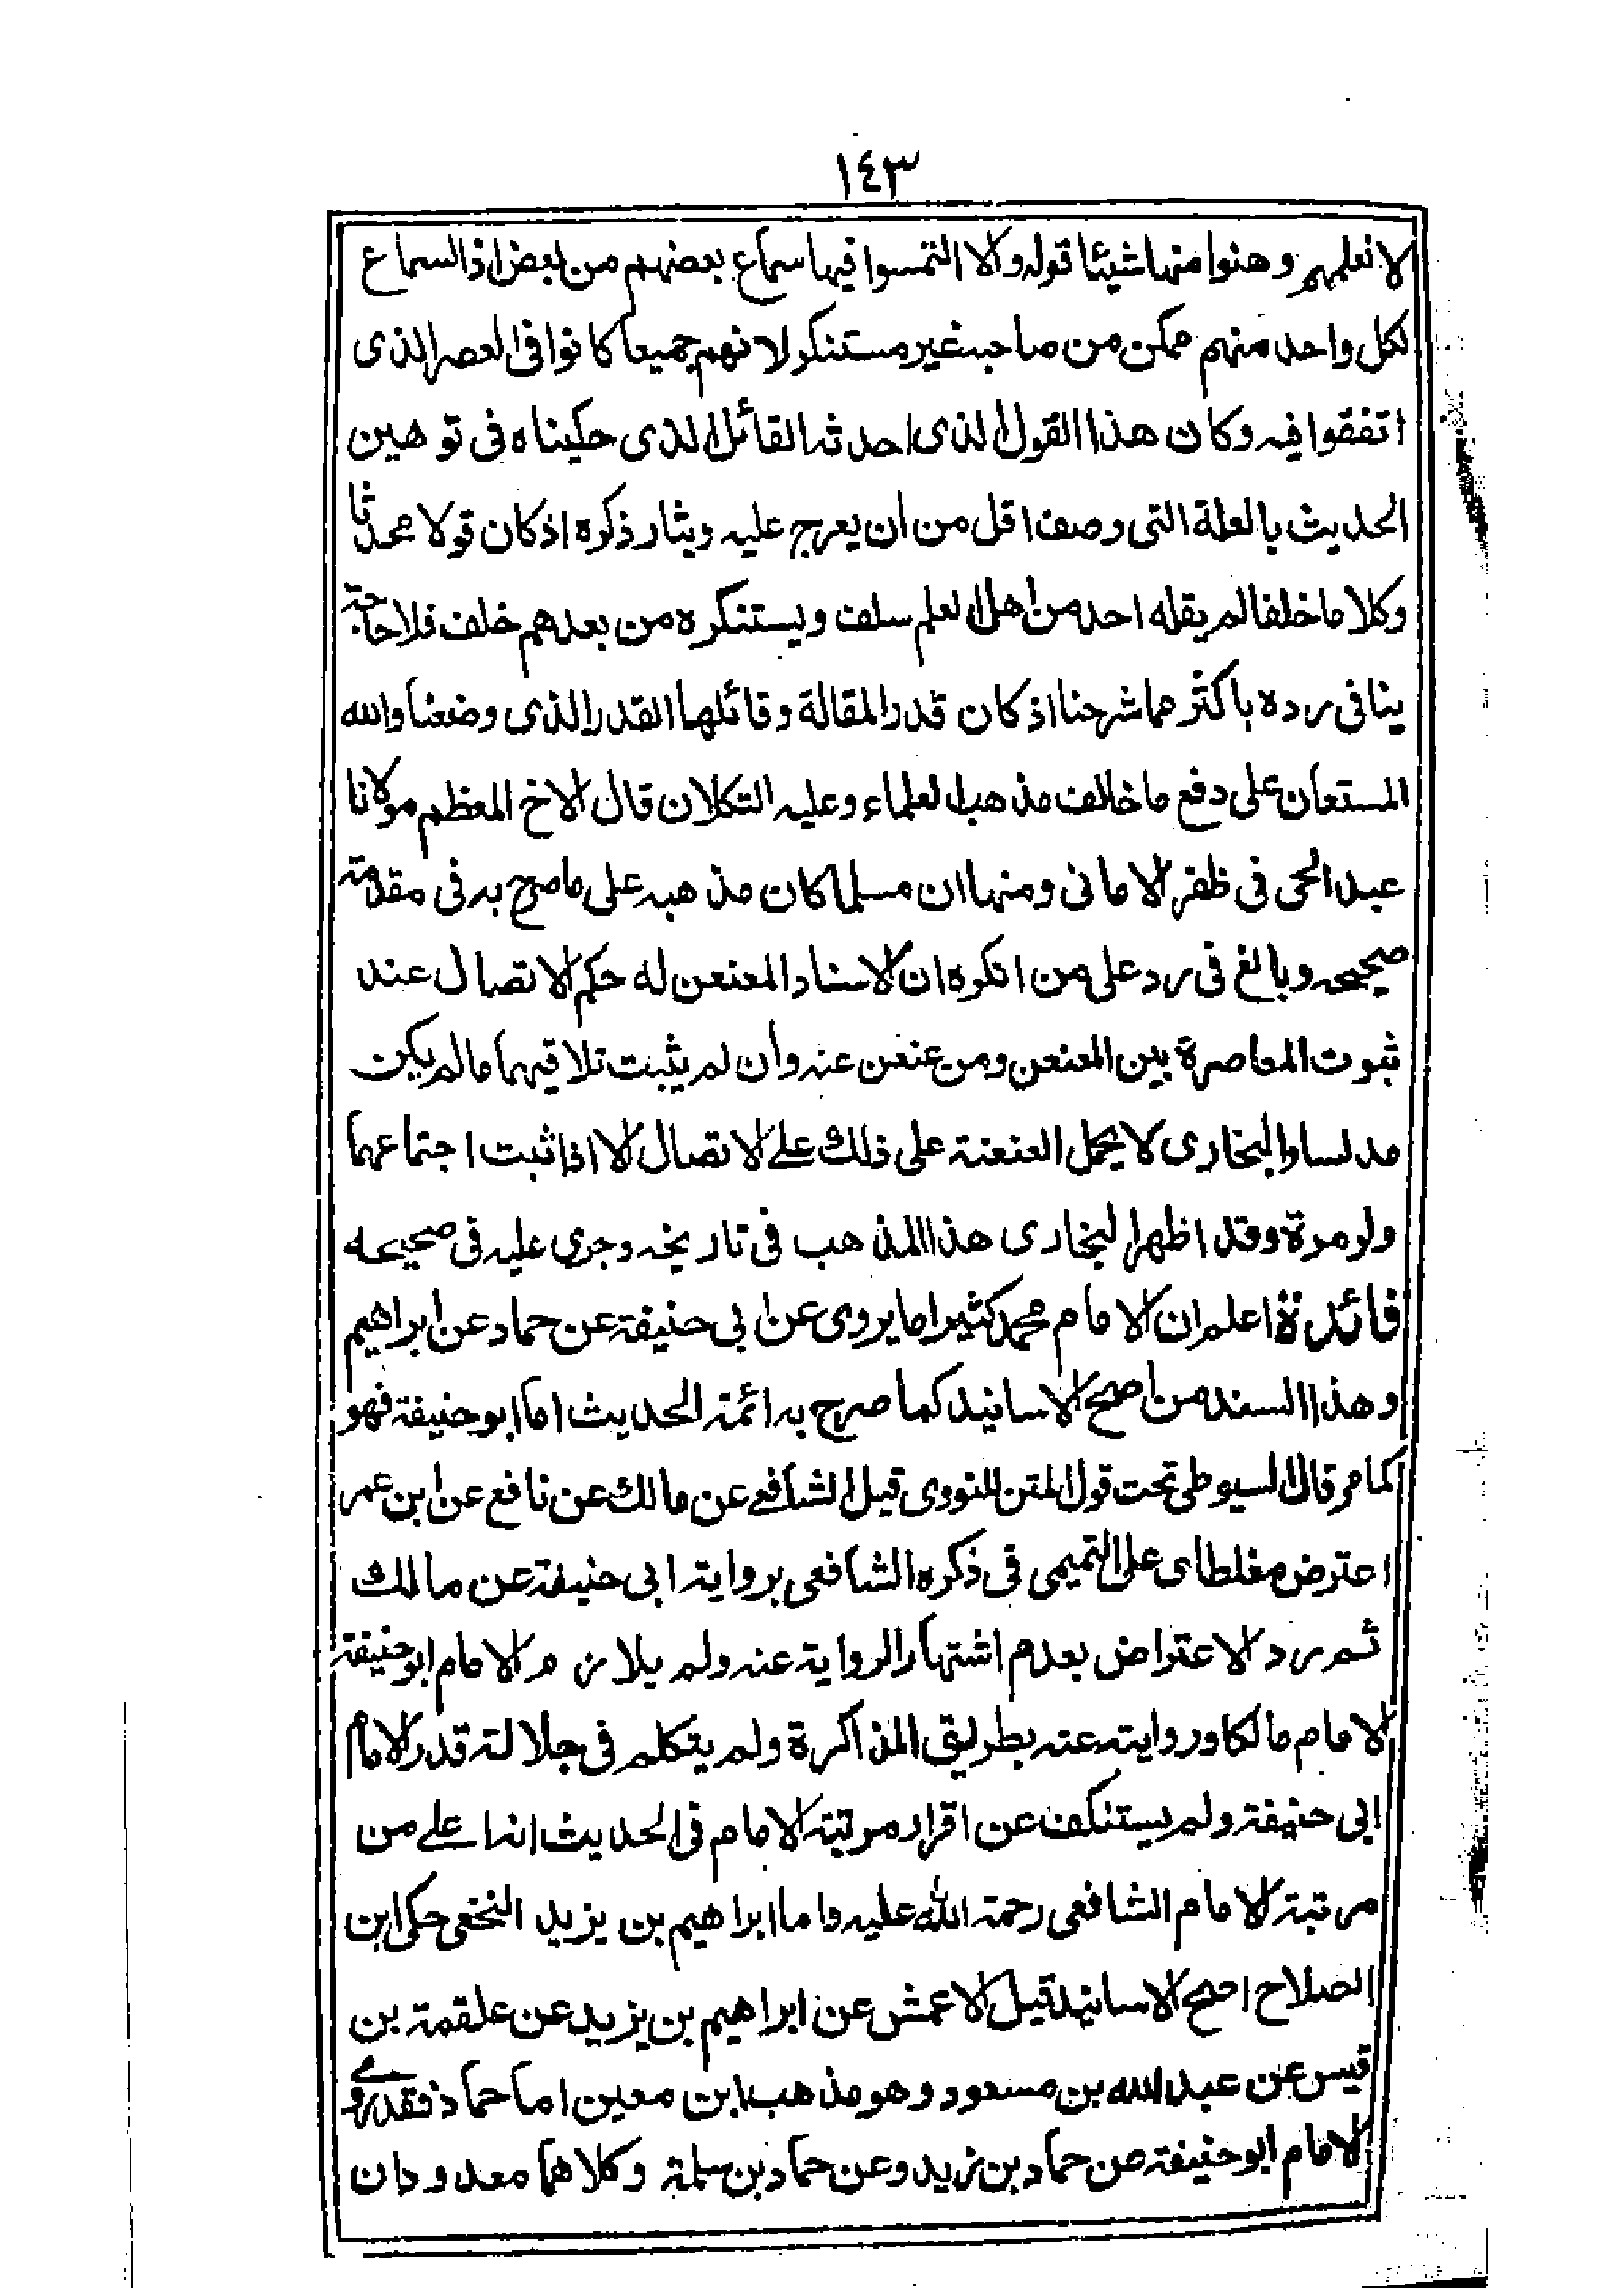 ١٤٣
لا نعلمهم وهنوا منها شيئا قوله ولا التمسوا فيها سماع بعضهم من بعض اذ السماع
لكل واحد منهم ممكن من صاحبه غير مستنكر لانهم جميعا كانوا فى العصر الذى
اتفقوا فيه وكان هذا القول الذى احدثه القائل الذى حكيناه فى توهين
الحديث بالعلة التى وصف اقل من ان يعرج عليه ويثار ذكره اذ كان قولا محدثا
وكلاما خلفا لم يقله احد من اهل العلم سلف ويستنكره من بعدهم خلف فلا حاجة
بنا فى رده باكثر مما شرحنا اذ كان قدر المقالة وقائلها القدر الذى وضعنا والله
المستعان على دفع ما خالف مذهب العلماء وعليه التكلان قال الاخ المعظم مولانا
عبد الحى فى ظفر الامانى ومنها ان مسلما كان مذهبه على ما صرح به فى مقدمة
صحيحه وبالغ فى رد على من انكره ان الاسناد المعنعن له حكم الاتصال عند
ثبوت المعاصرة بين المعنعن ومن عنعن عنه وان لم يثبت تلاقيهما ما لم يكن
مدلسا والبخارى لا يحمل العنعنة على ذلك على الاتصال الا اذا ثبت اجتماعهما
ولو مرة وقد اظهر البخارى هذا المذهب فى تاريخه وجرى عليه فى صحيحه
فائدة اعلم ان الامام محمد كثيرا ما يروى عن ابى حنيفة عن حماد عن ابراهيم
وهذا السند من اصح الاسانيد كما صرح به ائمة الحديث اما ابو حنيفة فهو
كما مر قال السيوطى تحت قول المتن للنووى قيل الشافعے عن مالك عن نافع عن ابن عمر
اعترض مغلطاى على التميمى فى ذكره الشافعى برواية ابى حنيفة عن مالك
ثم رد الاعتراض بعدم اشتهار الرواية عنه ولم يلازم الامام ابو حنيفة
الامام مالكا وروايته عنه بطريق المذاكرة ولم يتكلم فى جلالة قدر الامام
ابى حنيفة ولم يستنكف عن اقرار مرتبة الامام فى الحديث انه اعلے من
مرتبة الامام الشافعى رحمة الله عليه واما ابراهيم بن يزيد النخعى حكى ابن
الصلاح اصح الاسانيد قيل الاعمش عن ابراهيم بن يزيد عن علقمة بن
قيس عن عبد الله بن مسعود وهو مذهب ابن معين اما حماد فقد روے
الامام ابو حنيفة عن حماد بن زيد وعن حماد بن سلمة وكلاهما معدودان